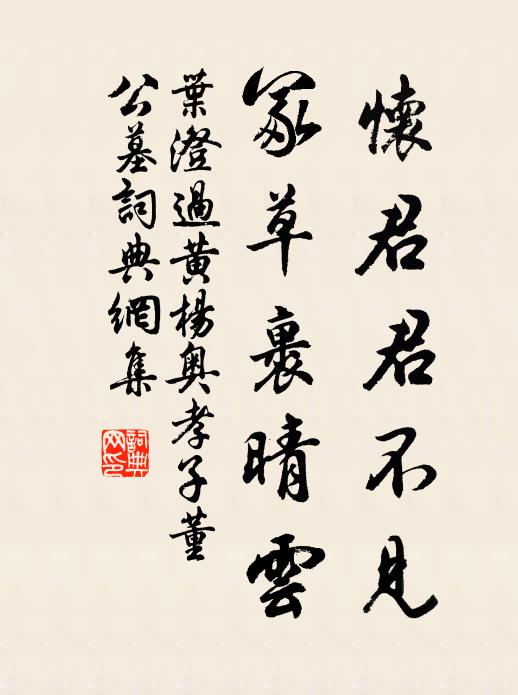 懷君君不見
冢草裹晴雲
葉澄過黃楊奧孝子董
公墓詞典網集
詞典網印